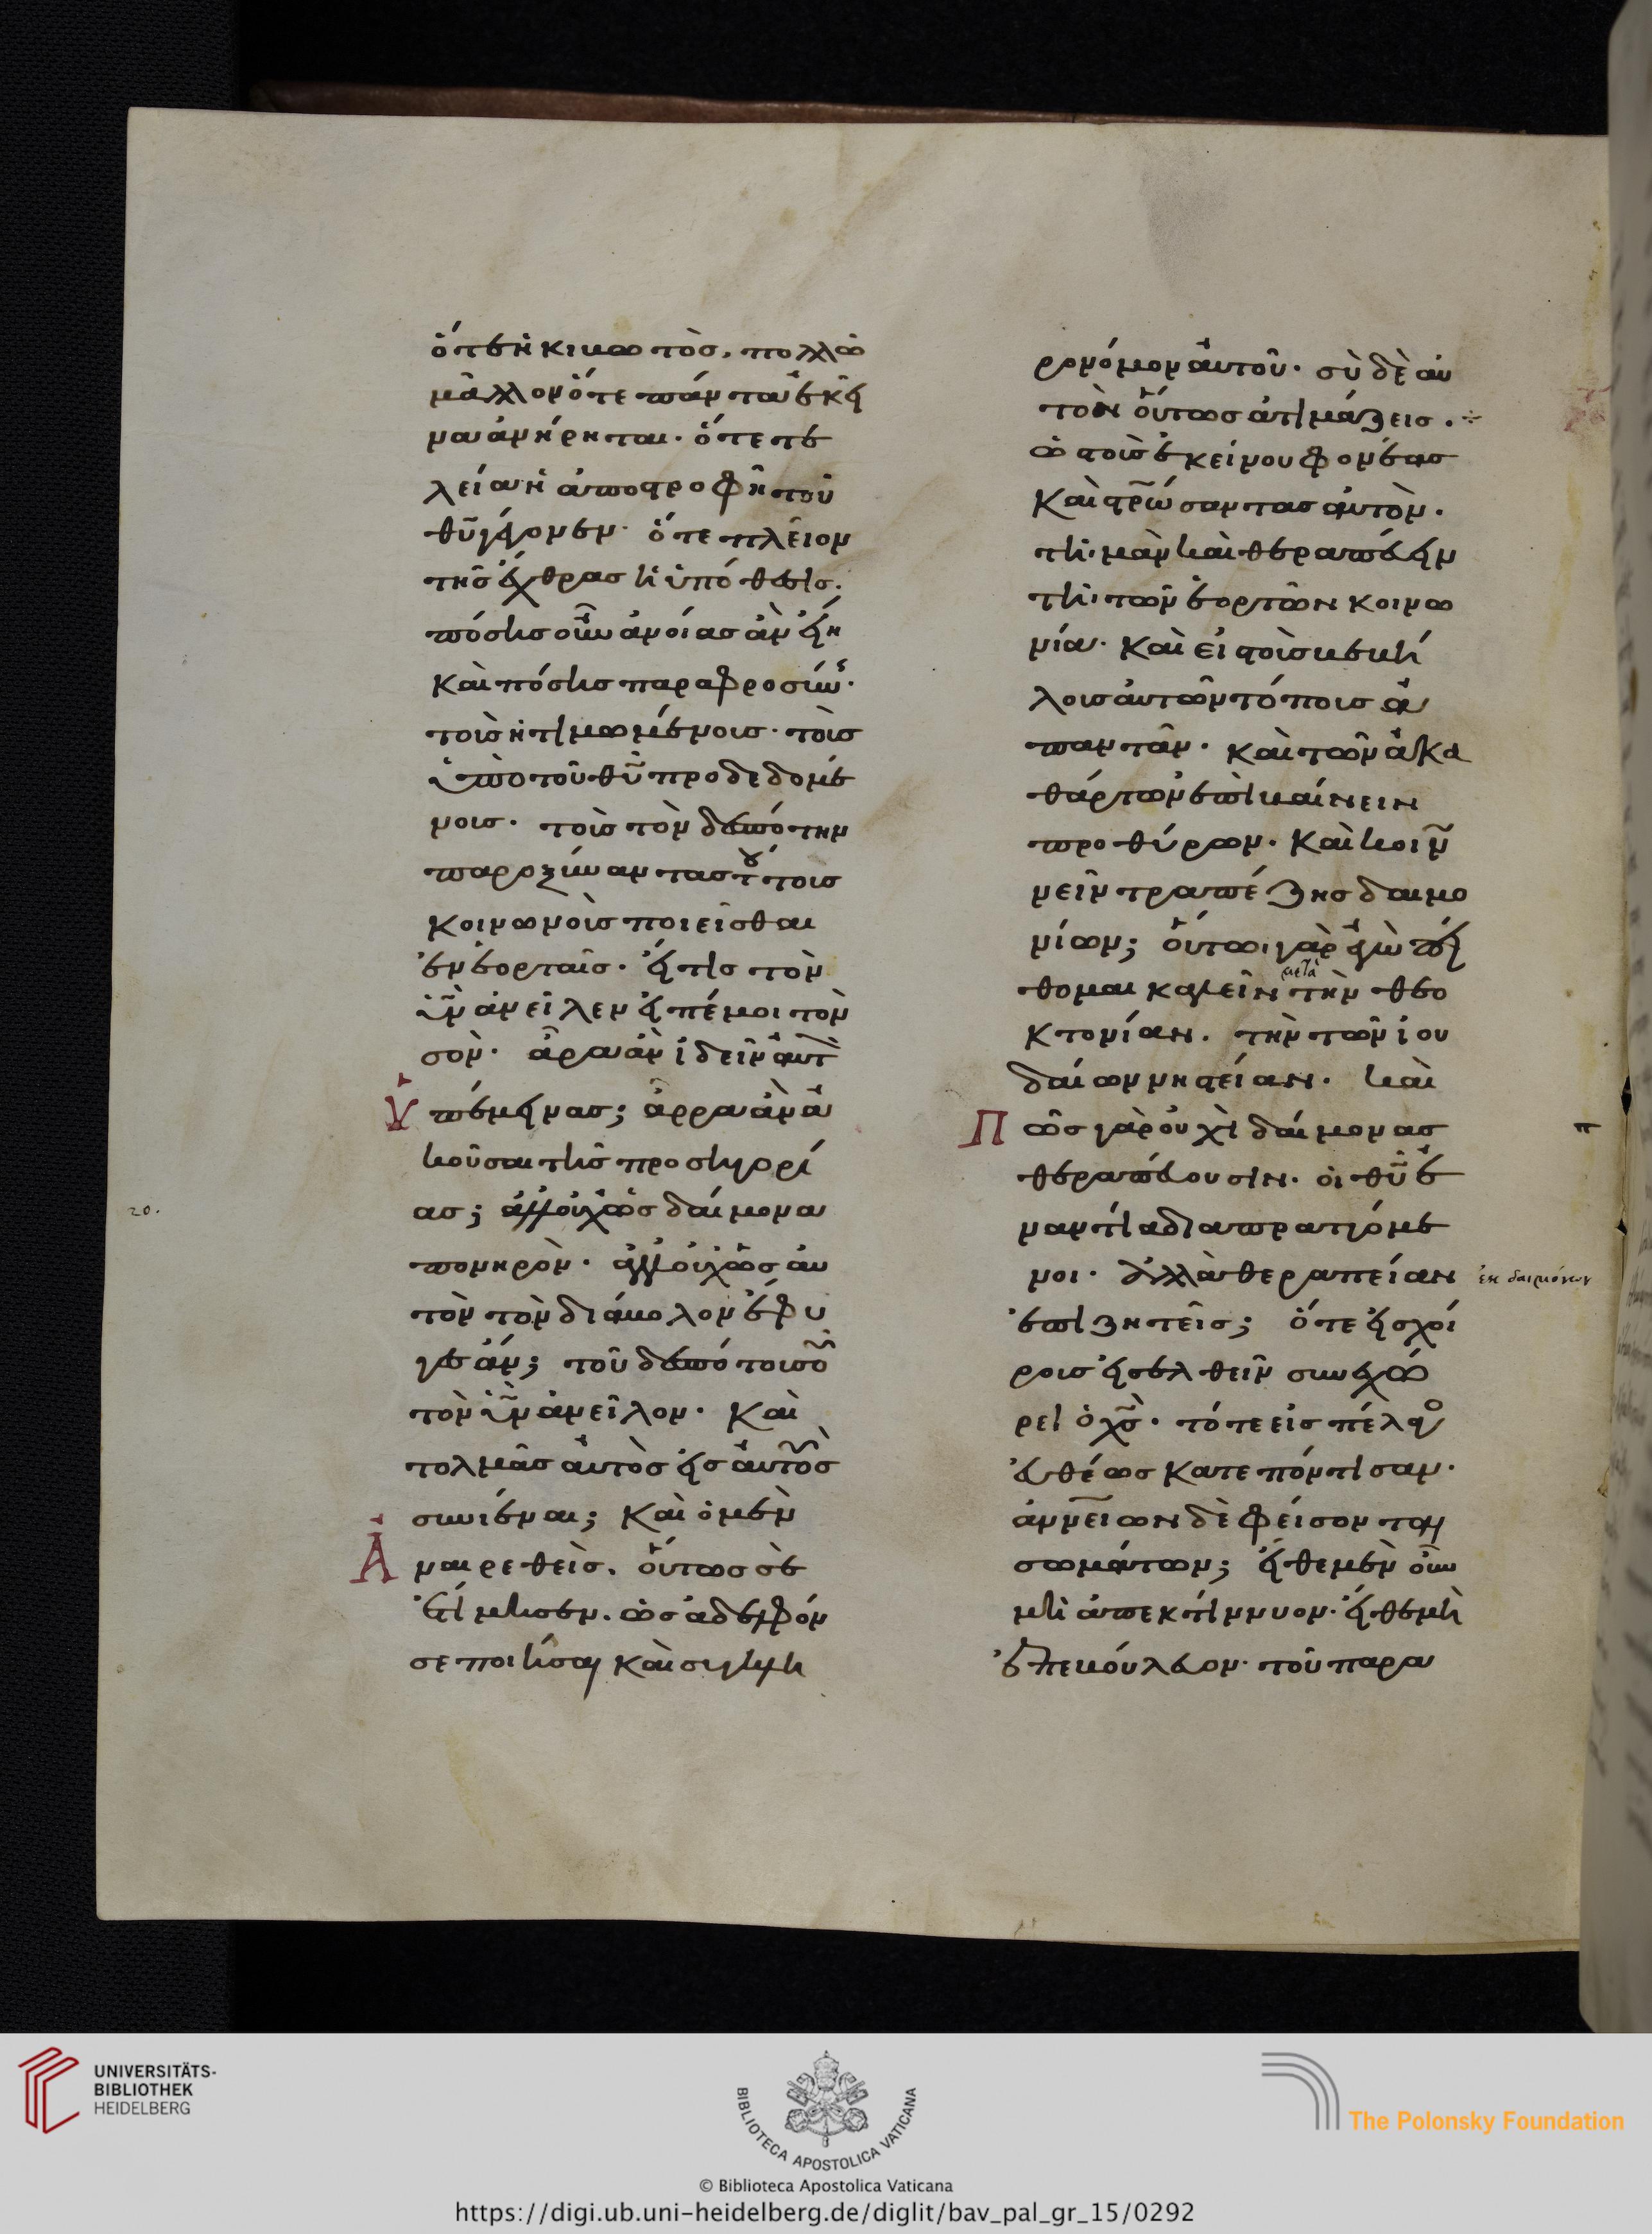 ὅτε ἡ κιβωτὸσ, πολλῶ
μᾶλλον ὅτε πάντα ἐκεῖ
να ἀνήρηται· ὅτε τε
λεία ἡ ἀποστροφὴ τοῦ
θῦ γέγονεν· ὅτε πλεῖον
τῆσ ἔχθρασ ἡ ὑπόθεσισ·
πόσησ οὖν ἀνοίασ ἂν εἴη
καὶ πόσησ παραφροσύνησ·
τοῖσ ἠτιμωμένοισ· τοῖσ
ὑπὸ τοῦ θῦ προδεδομέ
νοισ· τοῖσ τὸν δεσπότην
παροξύναντασ τούτοισ
κοινωνοῖσ ποιεῖσθαι
ἐν ἑορταῖσ· εἴ τισ τὸν
ὑῖν ἀνεῖλεν εἰπέ μοι τὸν
σὸν· ἆρα ἂν ἰδεῖν αὐτὸν
ὑπέμεινασ; ἆρα ἂν ἀ
κοῦσαι τῆσ προσηγορί
ασ; ἀλλ' οὐχ ὡσ δαίμονα
πονηρὸν· ἀλλ' οὐχ ὡσ αὐ
τὸν τὸν διάβολον ἔφυ
γεσ ἄν; τοῦ δεσπότου σου
τὸν ὑῖν ἀνεῖλον· καὶ
τολμᾶσ αὐτὸσ εἰσ αὐτοὺσ
συνιέναι; καὶ ὁ μὲν
ἀναιρεθεὶσ, οὕτωσ σὲ
ἐτίμησεν· ὡσ ἀδελφόν
σε ποιῆσαι καὶ συγκλη
ρονόμον αὐτοῦ· σὺ δὲ αὐ
τὸν οὕτωσ ἀτιμάζεισ·
ὡ τοὺσ ἐκείνου φονέασ
καὶ σρώσαντασ αὐτὸν·
τιμᾶν καὶ θεραπεύειν
τῆ τῶν ἑορτῶν κοινω
νία· καὶ εἰσ τοῖσ βεβή
λοισ αὐτῶν τόποισ ἀ
παντᾶν· καὶ τῶν ἀκα
θάρτων ἐπιβαίνειν
προθύρων· καὶ κοινω
νεῖν τραπέζησ δαιμο
νίων; οὕτω γὰρ ἐγὼ πεί
θομαι καλεῖν μετὰ τὴν θεο
κτονίαν· τὴν τῶν ἰου
δαίων νηστείαν· καὶ
πῶσ γὰρ οὐχὶ δαίμονασ
θεραπεύουσιν· οἱ θῦ ἐ
ναντία διαπραττόμε
νοι· ἀλλὰ θεραπείαν
ἐκ δαιμόνων
ἐπιζητεῖσ; ὅτε εἰσ χοί
ρουσ εἰσελθεῖν συνεχώ
ρει ὁ χσ· τότε εἰσ πέλαγοσ
εὐθέωσ κατεπόντισαν·
ἀννείων δὲ φείσονται
σωμάτων; εἴθε μὲν οὖν
μὴ ἀπεκτίννυον· εἴθε μὴ
ἐπεβούλευον· τοῦ παρα
20.
π
UNIVERSITÄTS-
BIBLIOTHEK
HEIDELBERG
BIBLIOTECA APOSTOLICA VATICANA
The Polonsky Foundation
© Biblioteca Apostolica Vaticana
https://digi.ub.uni-heidelberg.de/diglit/bav_pal_gr_15/0292